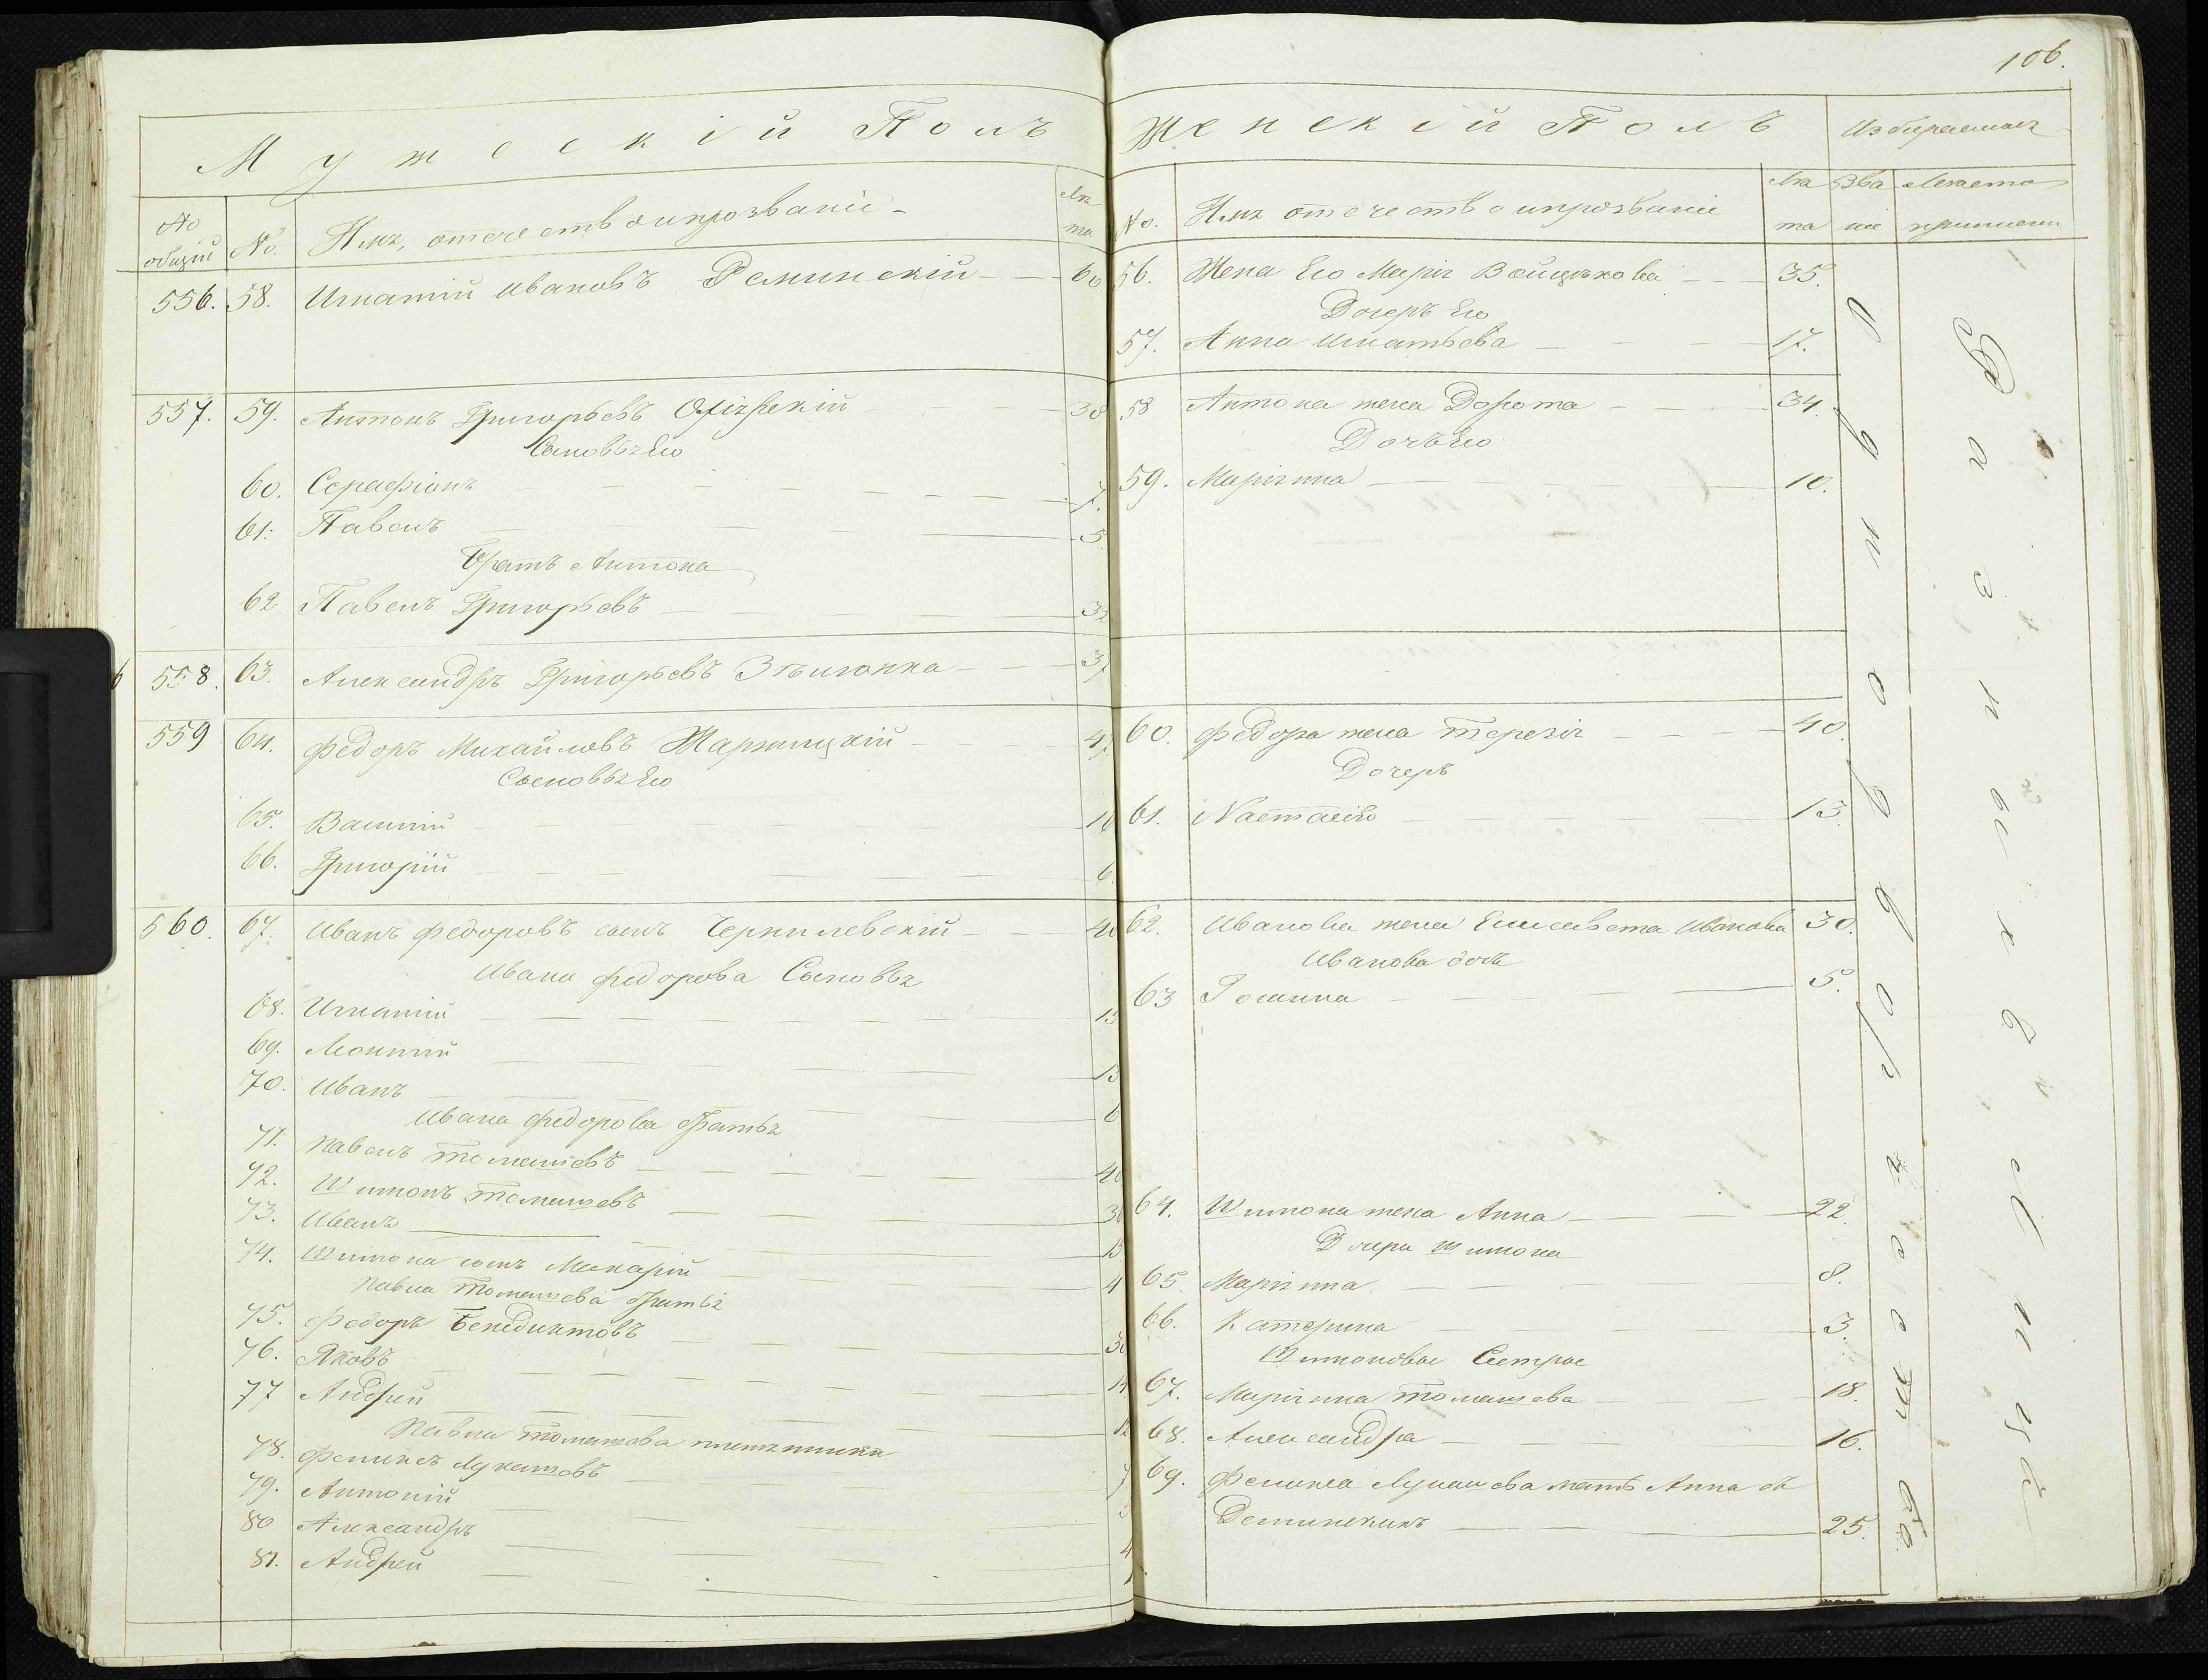 106.
Мужескій Полъ
No общій
No.
Имя, отечество и прозваніе
Лѣта
556. 58. Игнатій Ивановъ Реминскій 60
557. 59. Антонъ Григорьевъ 38
Сыновья Его
60. Серафіонъ 7.
61. Павелъ 5.
Братъ Антона
62. Павелъ Григорьевъ 32
558. 63. Александръ Григорьевъ 37
559 64. Федоръ Михайловъ Жаржицкій
Сыновья Его
65. Василій
66. Григорій 6
560. 67. Иванъ Федоровъ сынъ Чернилевскій 40
Ивана Федорова Сыновья
68. Игнатій 15
69. 13
70. Иванъ 6
Ивана Федорова братья
71. Павелъ Томашевъ 40
72. Шимонъ Томашевъ 30
73. Иванъ 15
74. Шимона сынъ Макарій 4
Павла Томашева братья
75. Федоръ Бенедиктовъ 30
76. Яковъ 14
77 Андрей 12
Павла Томашева племянники
78. Феликсъ Лукашовъ 7
79. Антоній
80 Александръ 4
81. Андрей
Женскій Полъ
No.
Имя отечество и прозваніе
Лѣта
56. Жена Его Марія Войцѣхова 35.
Дочерь Его
57. Анна Игнатьева 17.
58 Антона жена Дорота 34.
Дочь Его
59. Маріянна 10.
60. Федора жена Терезія 40.
Дочерь
61. 13.
62. Иванова жена Елисавета Иванова 30.
Иванова дочь
63 Іоанна 5.
64. Шимона жена Анна 22.
Дочери Шимона
65. Маріянна 8.
66. Катерина 3.
Шимоновы Сестры
67. Маріянна Томашева 18.
68. Александра 16.
69. Феликса Лукашова мать Анна
25.
Избираемая
Званіе
Мѣсто
Однодворчество
Разныхъ